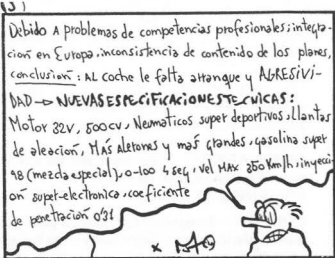 (3)
Debido A problemas de competencias profesionales; integra-
cion en Europa, inconsistencia de contenido de los planes,
conclusion: AL coche le falta arranque y AGRESIVI-
DAD → NUEVAS ESPECIFICACIONES TECNICAS:
Motor 32V, 500cv, Neumaticos super deportivos, llantas
de aleacion, MAS Alerones y mas grandes, gasolina super
98 (mezcla especial), 0-100 4 seg, vel MAX 350 Km/h, inyecci-
on super-electronica, coeficiente
de penetración 0'31